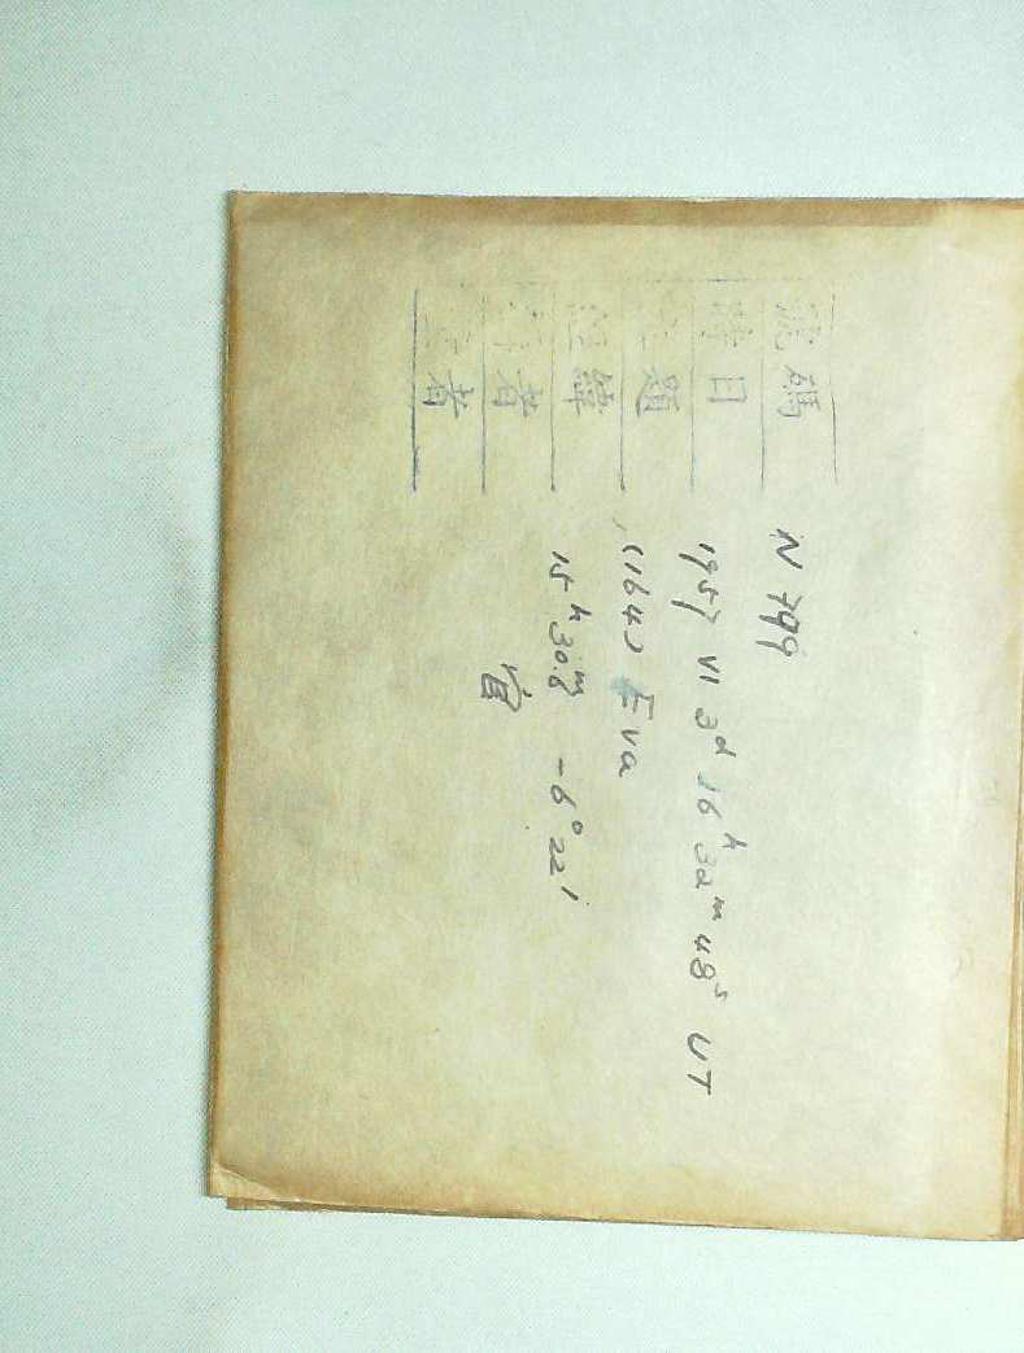 號碼 N 799
時日 1957 VI 3d 16h 32m 48s UT
題 (164) Eva
經緯 15h 30.8m -6° 22'
者 官
者